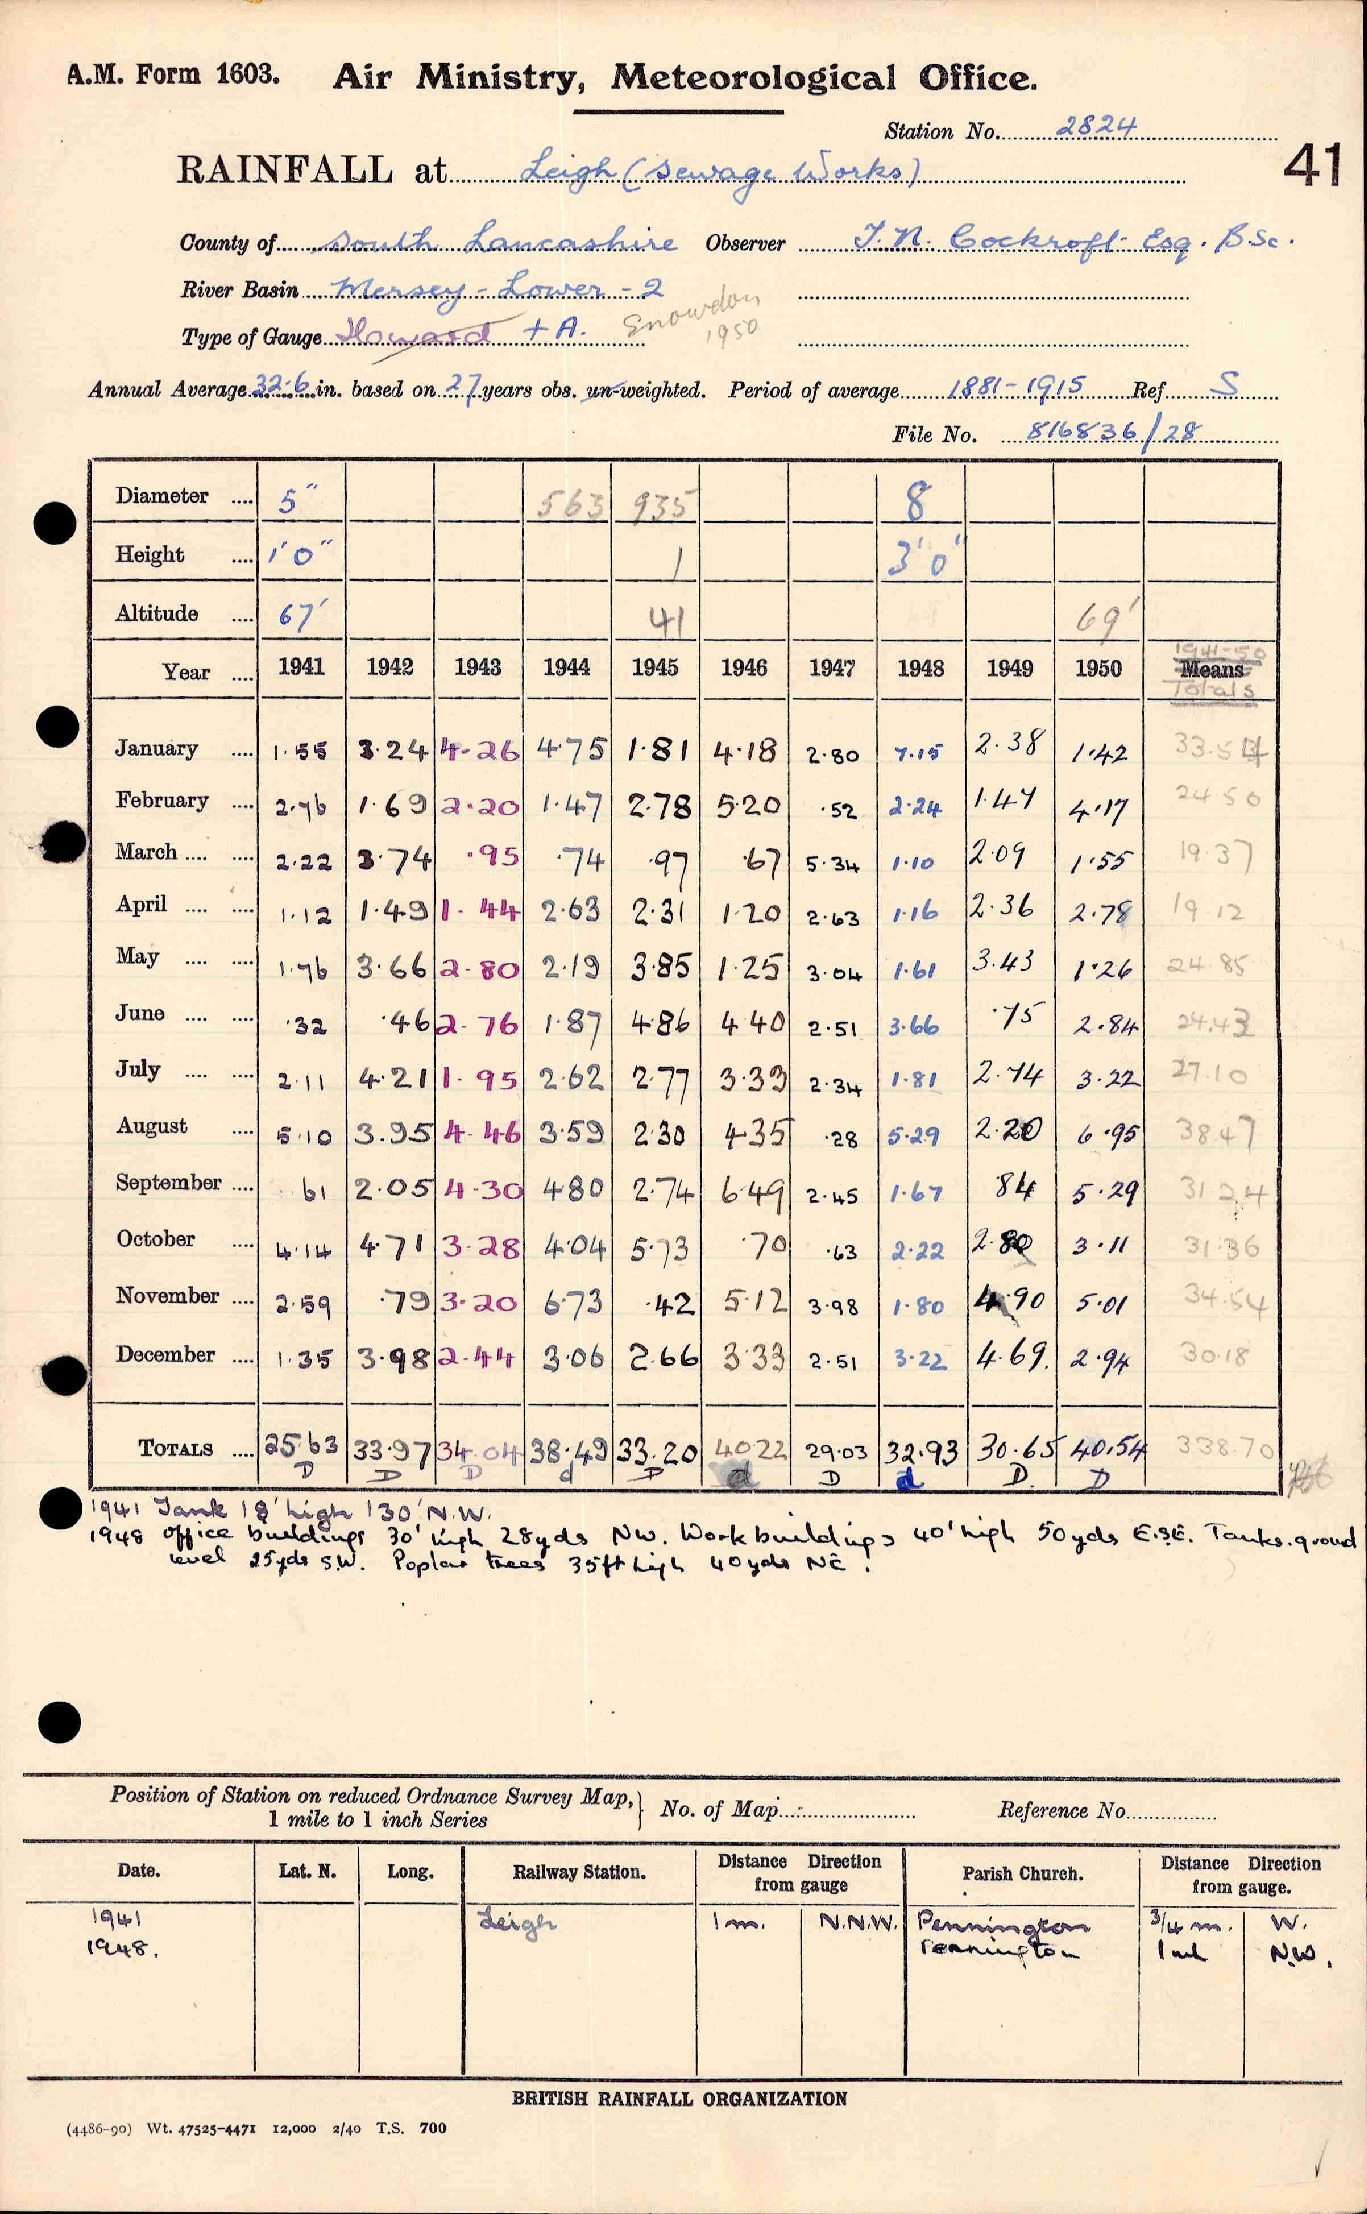 A.M. Form 1603. Air Ministry, Meteorological Office.
Station No. 2824
41
RAINFALL at Leigh (Sewage Works)
County of South Lancashire Observer J. N. Cockroft Esq. B.Sc.
River Basin Mersey - Lower - 2
Type of Gauge Howard + A. Snowdon 1950
Annual Average 32.6 in. based on 27 years obs. un-weighted. Period of average 1881-1915 Ref S
File No. 816836/28
Diameter .... 5" 563 935 8
Height .... 1'0" 1 3'0"
Altitude .... 67' 41 69'
Year .... 1941 1942 1943 1944 1945 1946 1947 1948 1949 1950 1941-50 Means Totals
January .... 1.55 3.24 4.26 4.75 1.81 4.18 2.80 7.15 2.38 1.42 33.54
February .... 2.76 1.69 2.20 1.47 2.78 5.20 .52 2.24 1.47 4.17 24.50
March .... .... 2.22 3.74 .95 .74 .97 .67 5.34 1.10 2.09 1.55 19.37
April .... .... 1.12 1.49 1.44 2.63 2.31 1.20 2.63 1.16 2.36 2.78 19.12
May .... .... 1.76 3.66 2.80 2.19 3.85 1.25 3.04 1.61 3.43 1.26 24.85
June .... .... .32 .46 2.76 1.87 4.86 4.40 2.51 3.66 .75 2.84 24.43
July .... .... 2.11 4.21 1.95 2.62 2.77 3.33 2.34 1.81 2.74 3.22 27.10
August .... 5.10 3.95 4.46 3.59 2.30 4.35 .28 5.29 2.20 6.95 38.47
September .... 61 2.05 4.30 4.80 2.74 6.49 2.45 1.67 84 5.29 31.24
October .... 4.14 4.71 3.28 4.04 5.73 .70 .63 2.22 2.80 3.11 31.36
November .... 2.59 .79 3.20 6.73 .42 5.12 3.98 1.80 4.90 5.01 34.54
December .... 1.35 3.98 2.44 3.06 2.66 3.33 2.51 3.22 4.69. 2.94 30.18
TOTALS .... 25.63 33.97 34.04 38.49 33.20 40.22 29.03 32.93 30.65 40.54 338.70
D D D d D d D d D. D
1941 Tank 18' high 130' N.W.
1948 Office buildings 30' high 28yds NW. Work buildings 40' high 50yds E.S.E. Tanks. ground
level 25yds S.W. Poplar trees 35ft high 40yds NE.
Position of Station on reduced Ordnance Survey Map,} No. of Map Reference No.
1 mile to 1 inch Series
Date. Lat. N. Long. Railway Station. Distance Direction from gauge Parish Church. Distance Direction from gauge.
1941 Leigh 1 m. N.N.W. Pennington 3/4 m. W.
1948. Pennington 1 ml N.W.
BRITISH RAINFALL ORGANIZATION
(4486-90) Wt. 47525-4471 12,000 2/40 T.S. 700